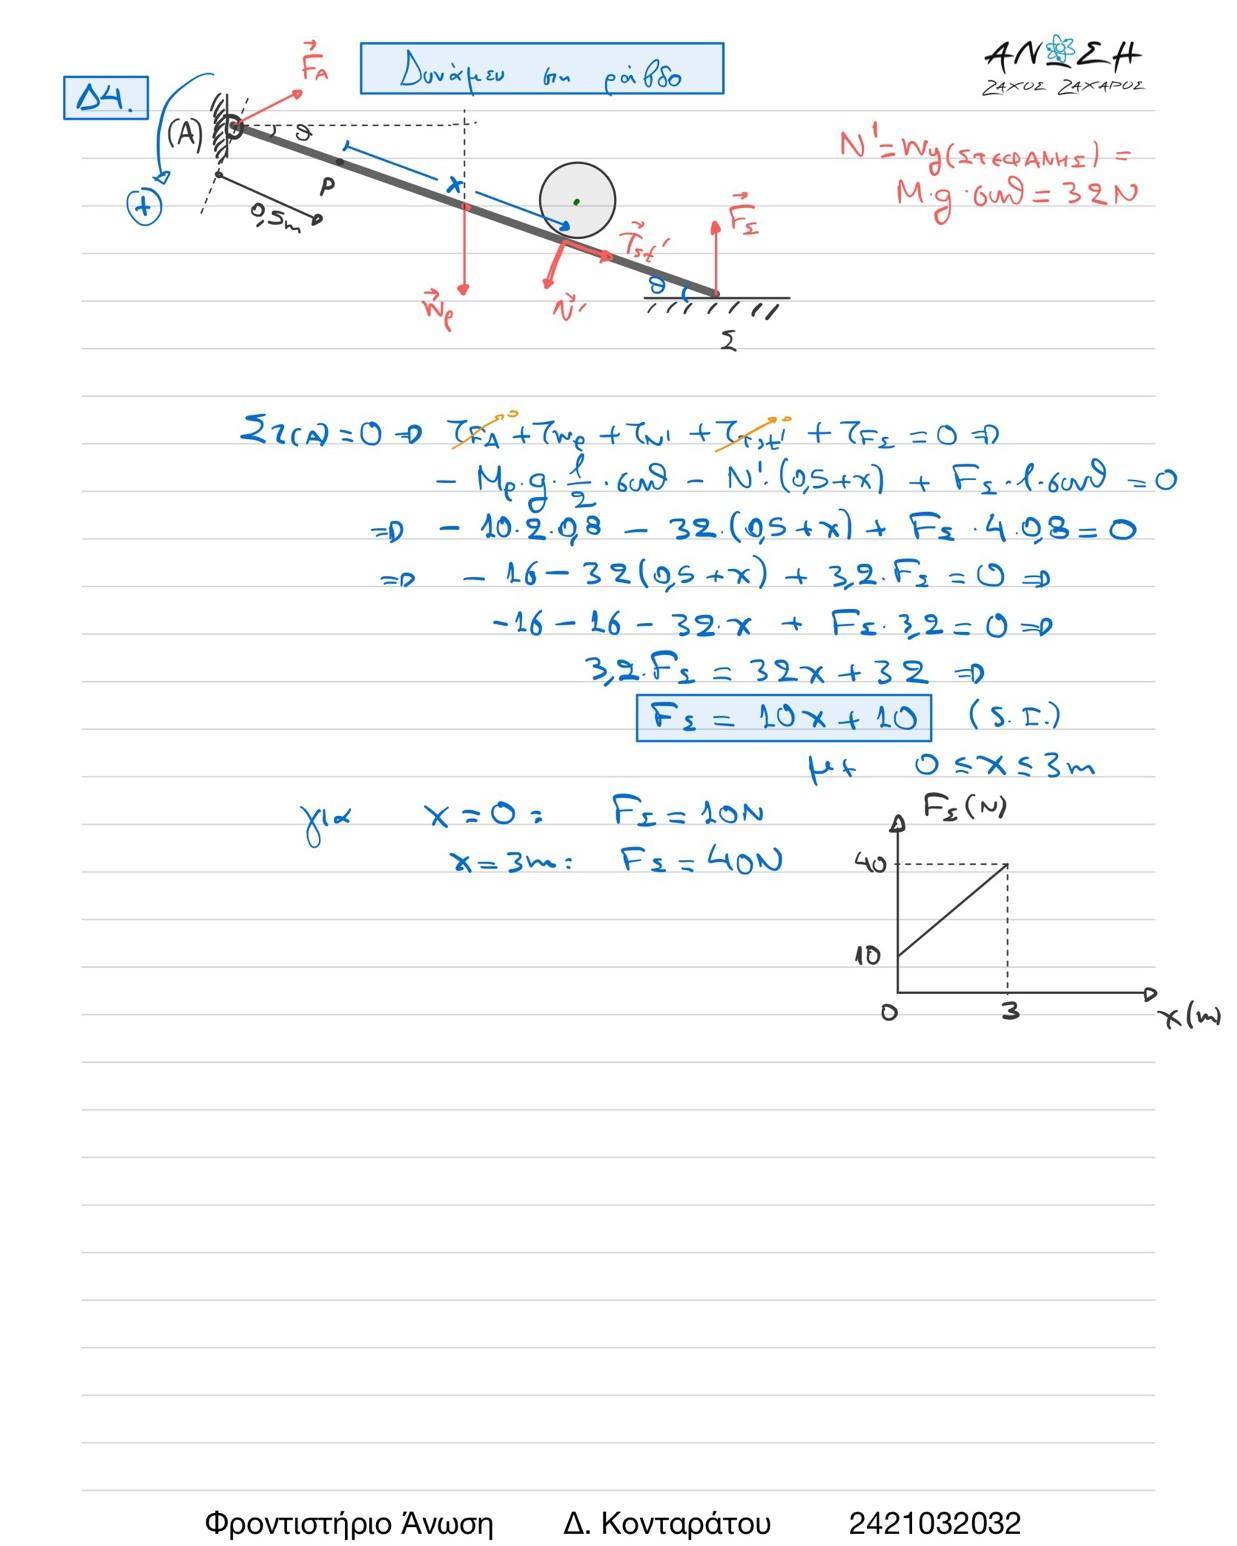 Δ4.
Δυνάμεις στη ράβδο
ΑΝΩΣΗ
ΖΑΧΟΣ ΖΑΧΑΡΟΣ
F⃗A
(A)
θ
+
P
0,5m
x
W⃗ρ
N⃗'
T⃗στ'
F⃗Σ
θ
Σ
N' = Wy(ΣΤΕΦΑΝΗΣ) =
M·g·συνθ = 32N
Στ(A) = 0 ⇒ τFA + τWρ + τN' + τTστ' + τFΣ = 0 ⇒
0 0
- Mρ·g·l/2·συνθ - N'·(0,5+x) + FΣ·l·συνθ = 0
⇒ - 10·2·0,8 - 32·(0,5+x) + FΣ·4·0,8 = 0
⇒ - 16 - 32(0,5+x) + 3,2·FΣ = 0 ⇒
-16 - 16 - 32·x + FΣ·3,2 = 0 ⇒
3,2·FΣ = 32x + 32 ⇒
FΣ = 10x + 10 (S.I.)
με 0 ≤ x ≤ 3m
για x = 0: FΣ = 10N
x = 3m: FΣ = 40N
FΣ(N)
40
10
0
3
x(m)
Φροντιστήριο Άνωση Δ. Κονταράτου 2421032032